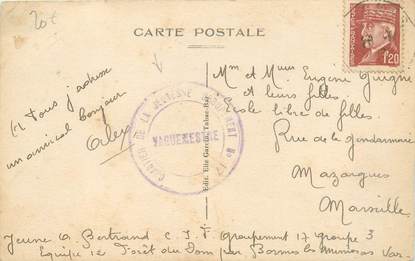 20€
CARTE POSTALE
1.20
Vous j'adresse
un amical bonjour
Alex
CHANTIER DE LA JEUNESSE GROUPEMENT No 17
VAGUEMESTRE
Edit. Elie Garcin, Tabac-Bar
Mr et Mme Eugène
et leurs filles
Ecole libre de filles
Rue de la Gendarmerie
Mazargues
Marseille
Jeune A Bertrand C.J.F Groupement 17 groupe 3
Equipe 12 Forêt du Dom par Bormes les Mimosas Var